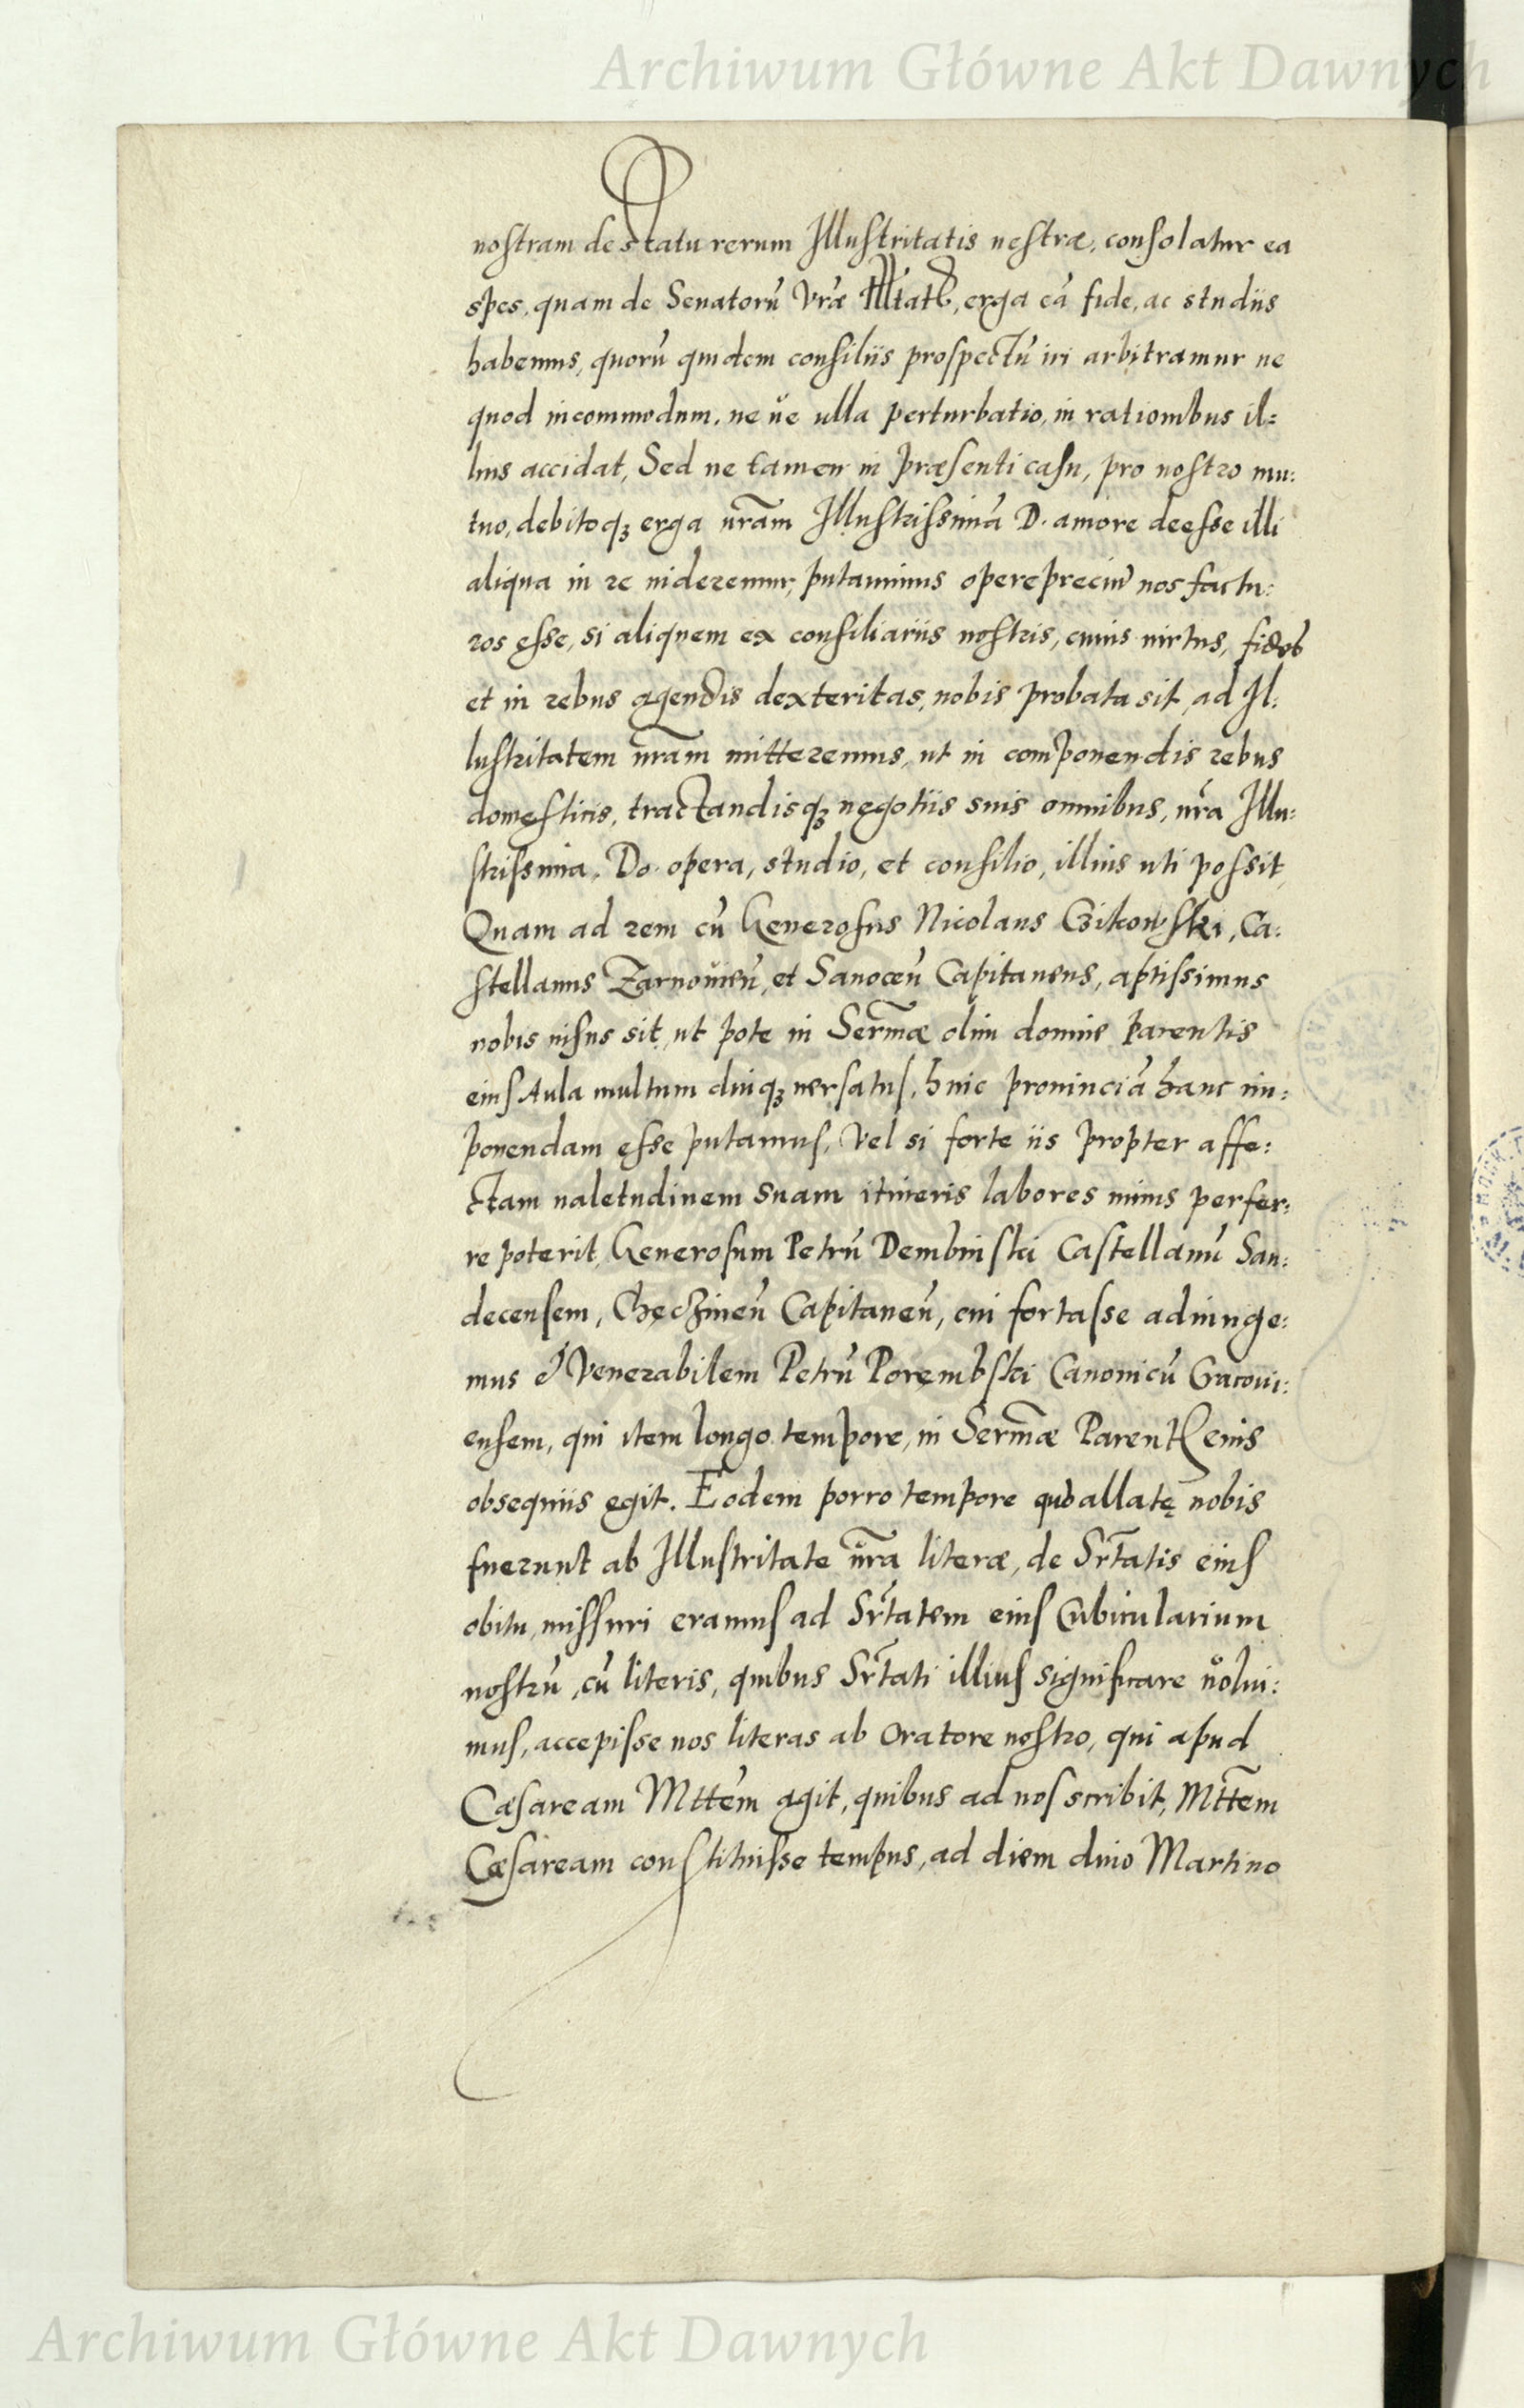 Archiwum Główne Akt Dawnych
nostram de statu rerum Illustritatis uestræ, consolatur ea
spes, quam de Senatorũ Vrãe Illtatis, erga eã fide, ac studiis
habemus, quorũ quidem consiliis prospectũ iri arbitramur ne
quod incommodum, ne ue ulla perturbatio, in rationibus il=
lius accidat, Sed ne tamen in præsenti casu, pro nostro mu:
tuo, debitoq₃ erga ur̃am Illustrissimã D. amore deesse illi
aliqua in re uideremur, putauimus operepreciũ nos factu:
ros esse, si aliquem ex consiliariis nostris, cuius uirtus, fides
et in rebus agendis dexteritas, nobis probata sit, ad Il:
lustritatem ur̃am mitteremus, ut in componendis rebus
domesticis, tractandisq₃ negotiis suis omnibus, ur̃a Illu:
strissima. Do. opera, studio, et consilio, illius uti possit,
Quam ad rem cũ Generosus Nicolaus Czikowski, Ca:
stellanus Zarnouieñ, et Sanoceñ Capitaneus, aptissimus
nobis uisus sit, ut pote in Serm̃æ olim dominę Parentis
eius Aula multum diuq₃ uersatus, huic prouinciã hanc im:
ponendam esse putamus, Vel si forte iis propter affe:
ctam ualetudinem suam itineris labores minus perfer:
re poterit, Generosum Petrũ Dembinski Castellanũ San:
decensem, Chęczineñ Capitaneũ, cui fortasse adiunge:
mus & Venerabilem Petrũ Porembski Canonicũ Cracoui:
ensem, qui item longo tempore, in Serm̃æ Parentis eius
obsequiis egit. Eodem porro tempore quo allatę nobis
fuerunt ab Illustritate ur̃a literæ, de Sr̃tatis eius
obitu, missuri eramus ad Sr̃tatem eius Cubicularium
nostrũ, cũ literis, quibus Sr̃tati illius significare uolui:
mus, accepisse nos literas ab Oratore nostro, qui apud
Cæsaream Mttẽm agit, quibus ad nos scribit, Mttẽm
Cæsaream constituisse tempus, ad diem diuo Martino
Archiwum Główne Akt Dawnych